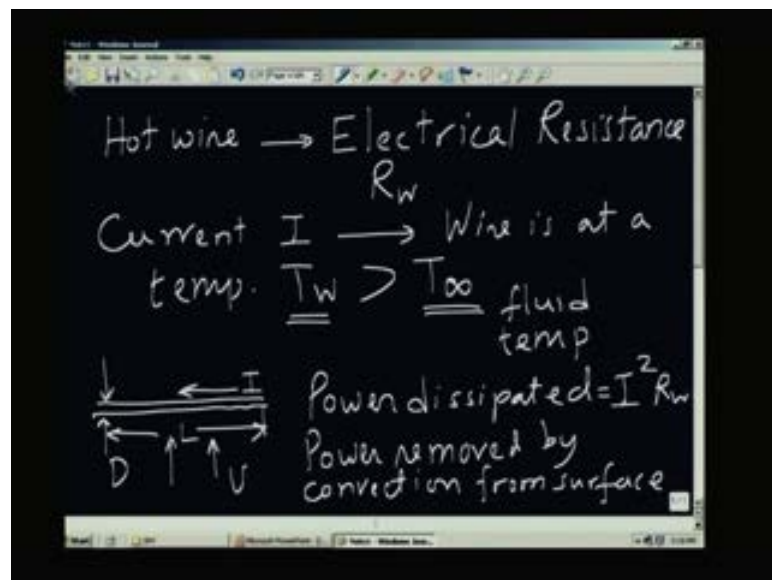 Hot wire → Electrical Resistance
R_W
Current I → Wire is at a
temp. T_W > T_∞ fluid
temp
I
L
D
U
Power dissipated = I² R_W
Power removed by
convection from surface